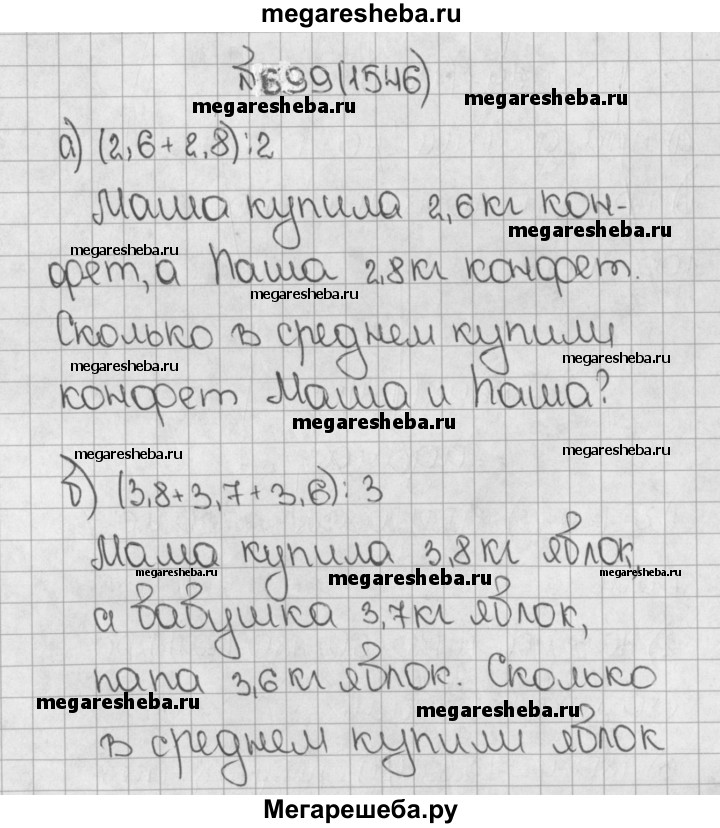 megaresheba.ru
№699(1546)
megaresheba.ru
megaresheba.ru
а) (2,6+2,8):2
Маша купила 2,6 кг кон-
megaresheba.ru
megaresheba.ru
фет, а Паша 2,8 кг конфет.
megaresheba.ru
Сколько в среднем купили
megaresheba.ru
megaresheba.ru
конфет Маша и Паша?
megaresheba.ru
megaresheba.ru
megaresheba.ru
б) (3,8+3,7+3,6):3
Мама купила 3,8 кг яблок,
megaresheba.ru
megaresheba.ru
megaresheba.ru
а бабушка 3,7 кг яблок,
папа 3,6 кг яблок. Сколько
megaresheba.ru
megaresheba.ru
в среднем купили яблок
Мегарешеба.ру